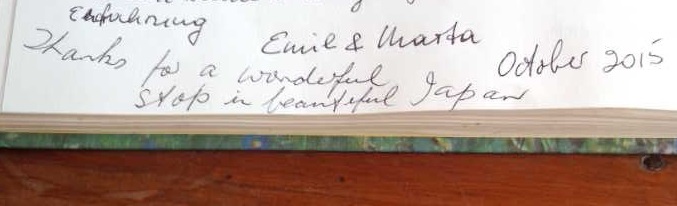 Erfahrung
Emil & Marta
Thanks for a wonderful October 2015
stop in beautiful Japan